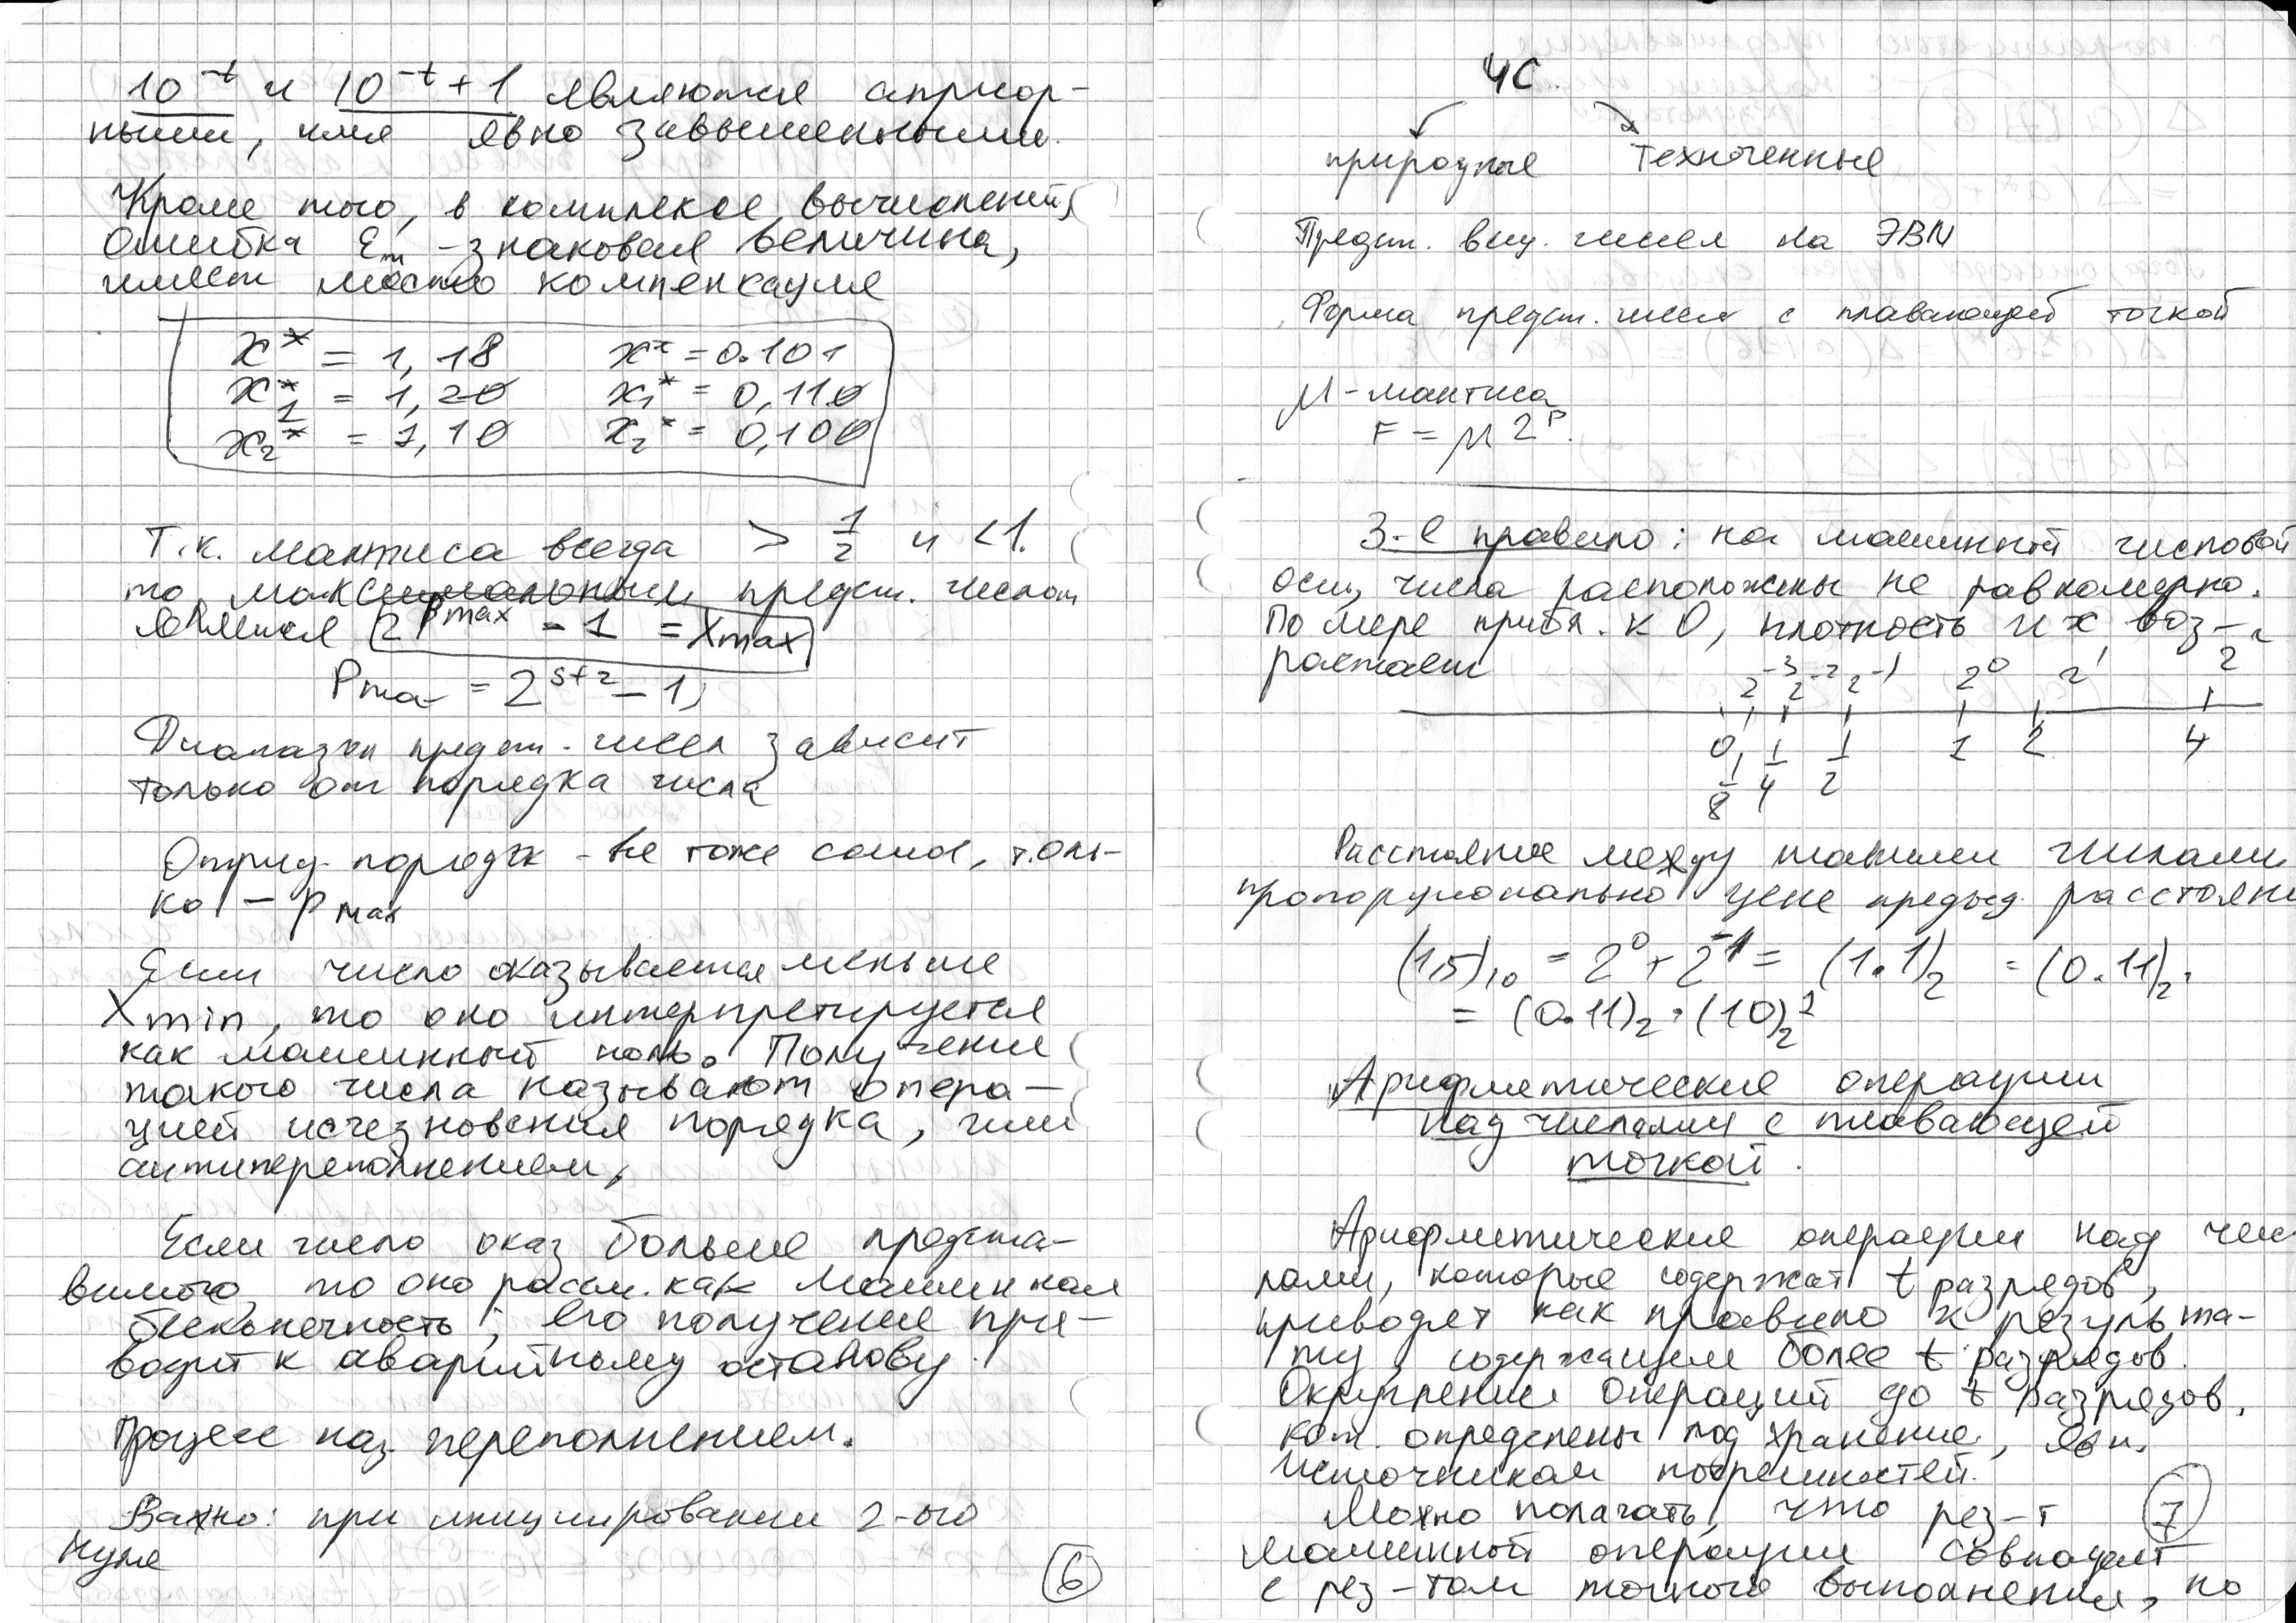 10^-t и 10^-t+1 являются априор-
ными, или явно завышенными.
Кроме того, в комплексе вычислений,
ошибка Em - знаковая величина,
имеет место компенсация
x* = 1,18 x* = 0.101
x1* = 1,20 x1* = 0,110
x2* = 1,10 x2* = 0,100
Т.к. мантиса всегда > 1/2 и <1.
то максимальным предст. числом
является 2^Pmax - 1 = Xmax
Pma- = 2^s+2 - 1)
Диапазон предст. чисел зависит
только от порядка числа
Отриц. порядк - все тоже самое, толь-
ко - Pmax
Если число оказывается меньше
Xmin, то оно интерпретируется
как машинный ноль. Получение
такого числа называют опера-
цией исчезновения порядка, или
антипереполнением,
Если число оказ больше предста-
вимого, то оно рассм. как машинная
бесконечность; его получение при-
водит к аварийному останову.
Процесс наз. переполнением.
Важно: при инициировании 2-ого
нуля
6
ЧС.
природные техногенные
Предст. вещ. чисел на ЭВМ
Форма предст. чисел с плавающей точкой
μ - мантиса
F = μ 2^P.
3-е правило: на машинной числовой
оси, числа расположены не равномерно.
По мере прибл. к 0, плотность их воз-
растает
2^-3 2^-2 2^-1 2^0 2^1 2^2
0 1/8 1/4 1/2 1 2 4
Расстояние между такими числами
пропорционально цене предыд. расстояни
(1,5)10 = 2^0 + 2^-1 = (1.1)2 = (0.11)2 ·
= (0.11)2 · (10)2^1
Арифметические операции
над числами с плавающей
точкой.
Арифметические операции над чис
лами, которые содержат t разрядов,
приводят как правило к результа-
ту, содержащем более t разрядов.
Округление операций до t разрядов,
кот. определены под хранение, явл.
источником погрешностей.
Можно полагать, что рез-т
машинной операции совпадает
с рез-том точного выполнения, но
7